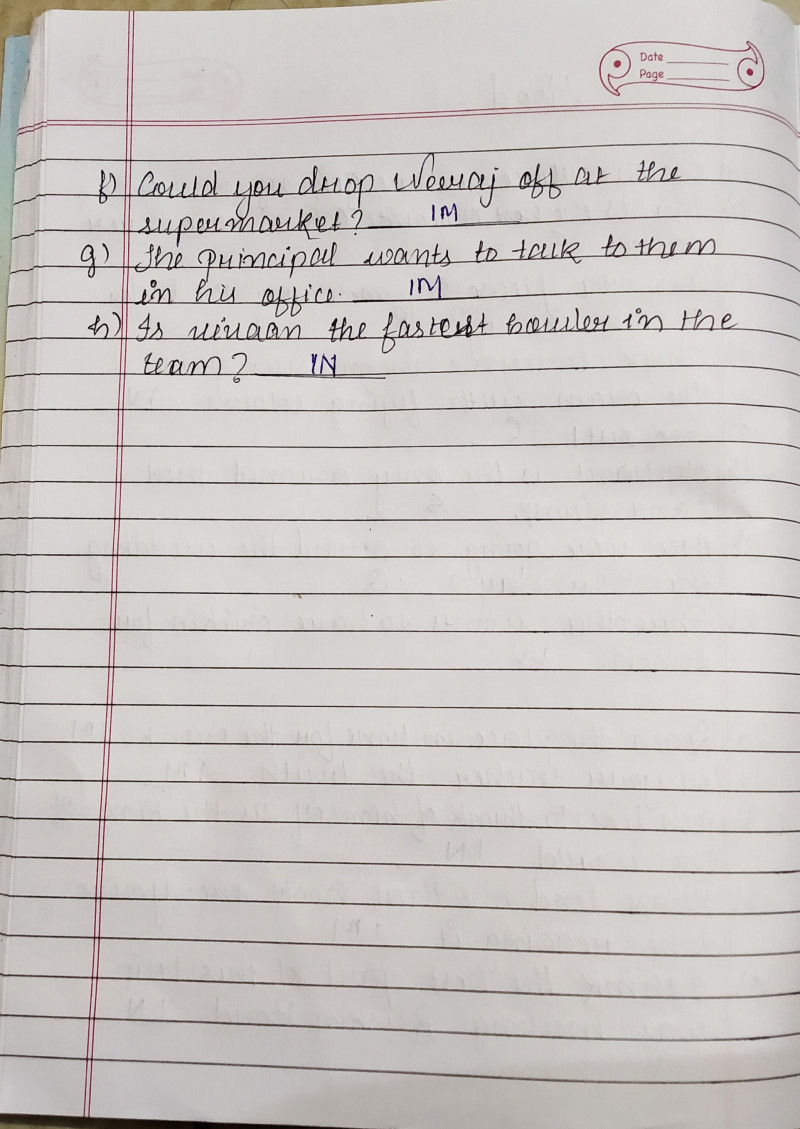 Date
Page
f) Could you drop Veeraj off at the
supermarket? IM
g) The principal wants to talk to them
in his office. IM
h) Is vivaan the fastest bowler in the
team? IN